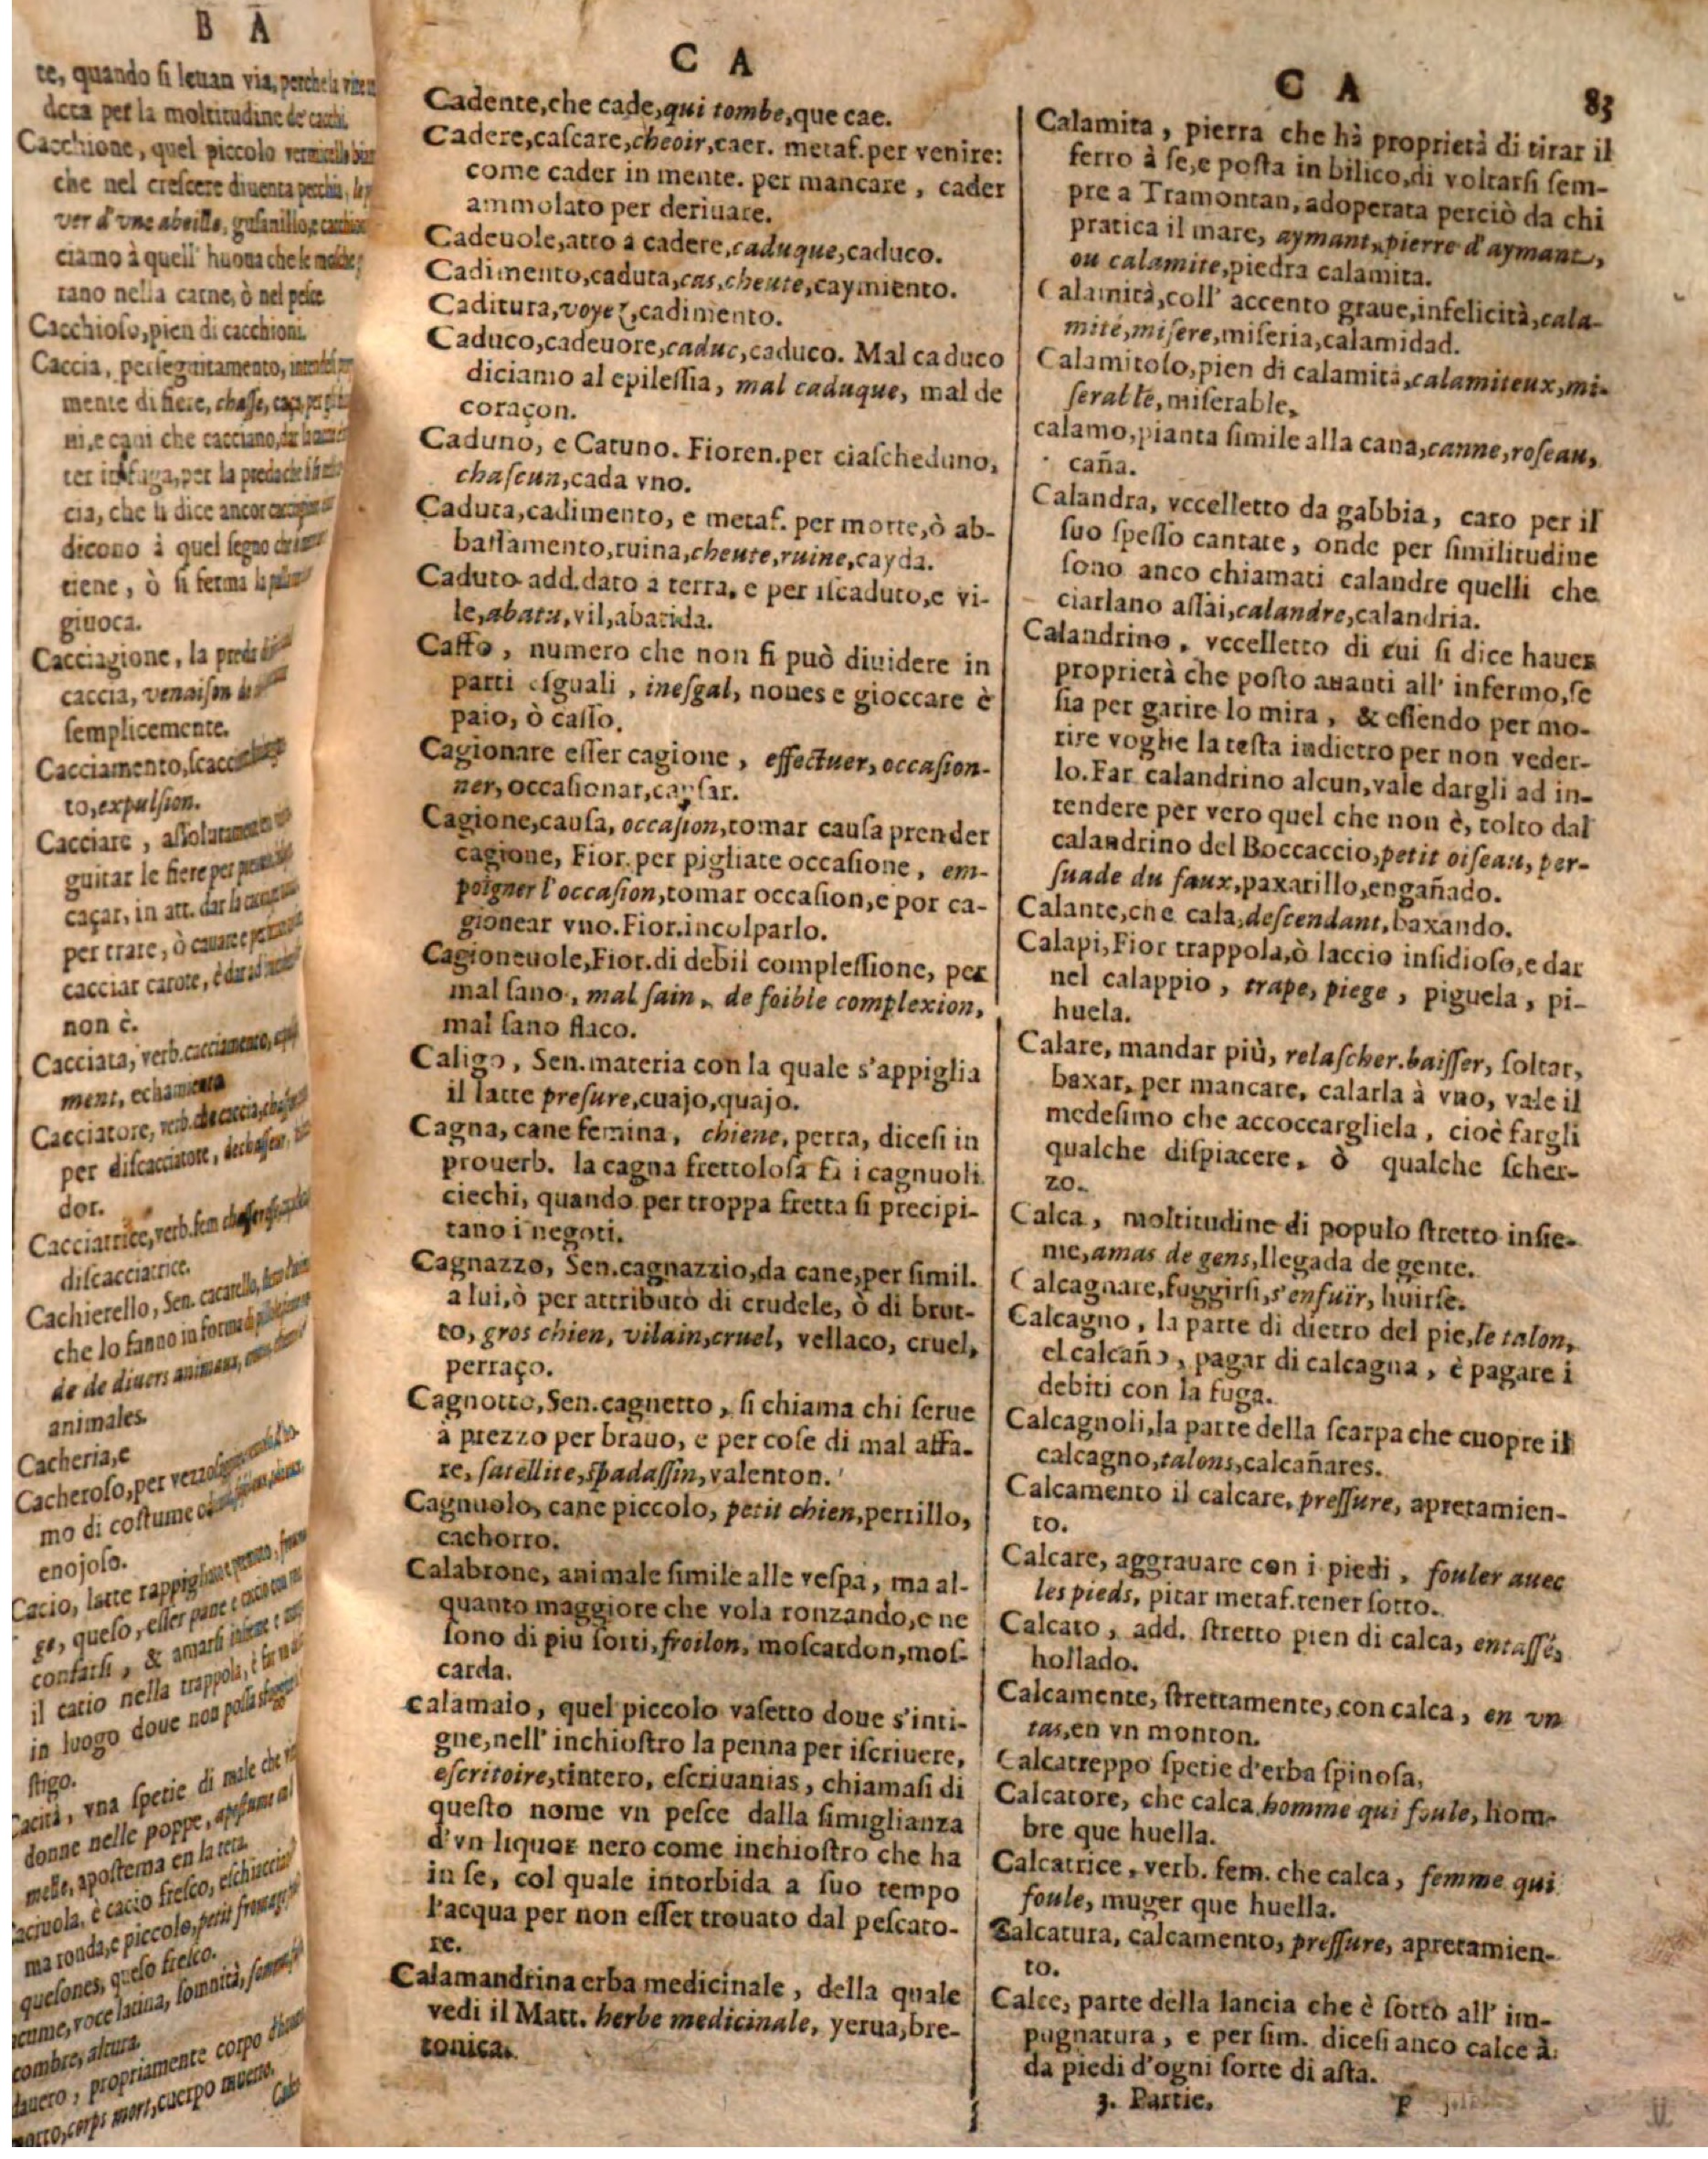 B A
te, quando ſi leuan via, perche la
detta per la moltitudine de'
Cacchione, quel piccolo vermicello
che nel creſcere diuenta pecchia,
ver d'vne abeille, guſanillo,
ciamo à quell' huoua che le moſche
rano nella carne, ò nel peſce
Cacchioſo, pien di cacchioni.
Caccia, perſeguitamento,
mente di fiere, chaſſe,
ni, e cani che cacciano,
ter in fuga, per la preda che
cia, che ſi dice ancor
dicono à quel ſegno
tiene, ò ſi ferma la
giuoca.
Cacciagione, la preda
caccia, venaiſon
ſemplicemente.
Cacciamento,
to, expulſion.
Cacciare, aſſolutamente
guitar le fiere per
caçar, in att. dar la
per trare, ò cauare e
cacciar carote, è dar ad
non è.
Cacciata, verb. cacciamento,
ment, echamiento
Cacciatore, verb. che caccia,
per diſcacciatore,
dor.
Cacciatrice, verb. fem
diſcacciatrice.
Cachierello, Sen. cacarello,
che lo fanno in forma di
de de diuers animaux,
animales.
Cacheria, e
Cacheroſo, per
mo di coſtume
enojoſo.
Cacio, latte rappigliato
ge, queſo, eſſer pane e cacio
confarſi, & amarſi inſieme
il cacio nella trappola, è
in luogo doue non poſſa
ſtigo.
Cacità, vna ſpetie di male che
donne nelle poppe,
melle, apoſtema en la teta.
Caciuola, è cacio freſco,
ma tonda, e piccolo, petit fromage
queſones, queſo freſco.
voce latina, ſommità,
combre, altura.
propriamente corpo
corps mort, cuerpo muerto.
C A
Cadente, che cade, qui tombe, que cae.
Cadere, caſcare, cheoir, caer. metaf. per venire:
come cader in mente. per mancare, cader
ammolato per deriuare.
Cadeuole, atto à cadere, caduque, caduco.
Cadimento, caduta, cas, cheute, caymiento.
Caditura, voyez, cadimento.
Caduco, cadeuore, caduc, caduco. Mal caduco
diciamo al epileſſia, mal caduque, mal de
coraçon.
Caduno, e Catuno. Fioren. per ciaſcheduno,
chaſcun, cada vno.
Caduta, cadimento, e metaf. per morte, ò ab-
baſſamento, ruina, cheute, ruine, cayda.
Caduto add. dato a terra, e per iſcaduto, e vi-
le, abatu, vil, abatida.
Caffo, numero che non ſi può diuidere in
parti eſguali, ineſgal, nones e gioccare è
paio, ò caſſo.
Cagionare eſſer cagione, effectuer, occaſion-
ner, occaſionar, cauſar.
Cagione, cauſa, occaſion, tomar cauſa prender
cagione, Fior. per pigliate occaſione, em-
poigner l'occaſion, tomar occaſion, e por ca-
gionear vno. Fior. incolparlo.
Cagioneuole, Fior. di debil compleſſione, per
mal ſano, mal ſain, de foible complexion,
mal ſano flaco.
Caligo, Sen. materia con la quale s'appiglia
il latte preſure, cuajo, quajo.
Cagna, cane femina, chiene, perra, diceſi in
prouerb. la cagna frettoloſa fà i cagnuoli
ciechi, quando per troppa fretta ſi precipi-
tano i negoti.
Cagnazzo, Sen. cagnazzio, da cane, per ſimil.
a lui, ò per attributo di crudele, ò di brut-
to, gros chien, vilain, cruel, vellaco, cruel,
perraço.
Cagnotto, Sen. cagnetto, ſi chiama chi ſerue
à prezzo per brauo, e per coſe di mal affa-
re, ſatellite, ſpadaſſin, valenton.
Cagnuolo, cane piccolo, petit chien, perrillo,
cachorro.
Calabrone, animale ſimile alle veſpa, ma al-
quanto maggiore che vola ronzando, e ne
ſono di piu ſorti, froilon, moſcardon, moſ-
carda.
calamaio, quel piccolo vaſetto doue s'inti-
gne, nell' inchioſtro la penna per iſcriuere,
eſcritoire, tintero, eſcriuanias, chiamaſi di
queſto nome vn peſce dalla ſimiglianza
d'vn liquor nero come inchioſtro che ha
in ſe, col quale intorbida a ſuo tempo
l'acqua per non eſſer trouato dal peſcato-
re.
Calamandrina erba medicinale, della quale
vedi il Matt. herbe medicinale, yerua, bre-
tonica.
C A 83
Calamita, pierra che hà proprietà di tirar il
ferro à ſe, e poſta in bilico, di voltarſi ſem-
pre a Tramontan, adoperata perciò da chi
pratica il mare, aymant, pierre d'aymant,
ou calamite, piedra calamita.
Calamità, coll' accento graue, infelicità, cala-
mité, miſere, miſeria, calamidad.
Calamitoſo, pien di calamità, calamiteux, mi-
ſerable, miſerable,
calamo, pianta ſimile alla cana, canne, roſeau,
caña.
Calandra, vccelletto da gabbia, caro per il
ſuo ſpeſſo cantate, onde per ſimilitudine
ſono anco chiamati calandre quelli che
ciarlano aſſai, calandre, calandria.
Calandrino, vccelletto di cui ſi dice hauer
proprietà che poſto auanti all' infermo, ſe
ſia per garire lo mira, & eſſendo per mo-
rire voglie la teſta indietro per non veder-
lo. Far calandrino alcun, vale dargli ad in-
tendere per vero quel che non è, tolto dal
calandrino del Boccaccio, petit oiſeau, per-
ſuade du faux, paxarillo, engañado.
Calante, che cala, deſcendant, baxando.
Calapi, Fior trappola, ò laccio inſidioſo, e dar
nel calappio, trape, piege, piguela, pi-
huela.
Calare, mandar più, relaſcher. baiſſer, ſoltar,
baxar, per mancare, calarla à vno, vale il
medeſimo che accoccargliela, cioè fargli
qualche diſpiacere, ò qualche ſcher-
zo.
Calca, moltitudine di populo ſtretto inſie-
me, amas de gens, llegada de gente.
Calcagnare, fuggirſi, s'enfuïr, huirſe.
Calcagno, la parte di dietro del pie, le talon,
el calcaño, pagar di calcagna, è pagare i
debiti con la fuga.
Calcagnoli, la parte della ſcarpa che cuopre il
calcagno, talons, calcañares.
Calcamento il calcare, preſſure, apretamien-
to.
Calcare, aggrauare con i piedi, fouler auec
les pieds, pitar metaf. tener ſotto.
Calcato, add. ſtretto pien di calca, entaſſé,
hollado.
Calcamente, ſtrettamente, con calca, en vn
tas, en vn monton.
Calcatreppo ſpetie d'erba ſpinoſa,
Calcatore, che calca, homme qui foule, hom-
bre que huella.
Calcatrice, verb. fem. che calca, femme qui
foule, muger que huella.
Calcatura, calcamento, preſſure, apretamien-
to.
Calce, parte della lancia che è ſotto all' im-
pugnatura, e per ſim. diceſi anco calce à
da piedi d'ogni ſorte di aſta.
3. Partie. P